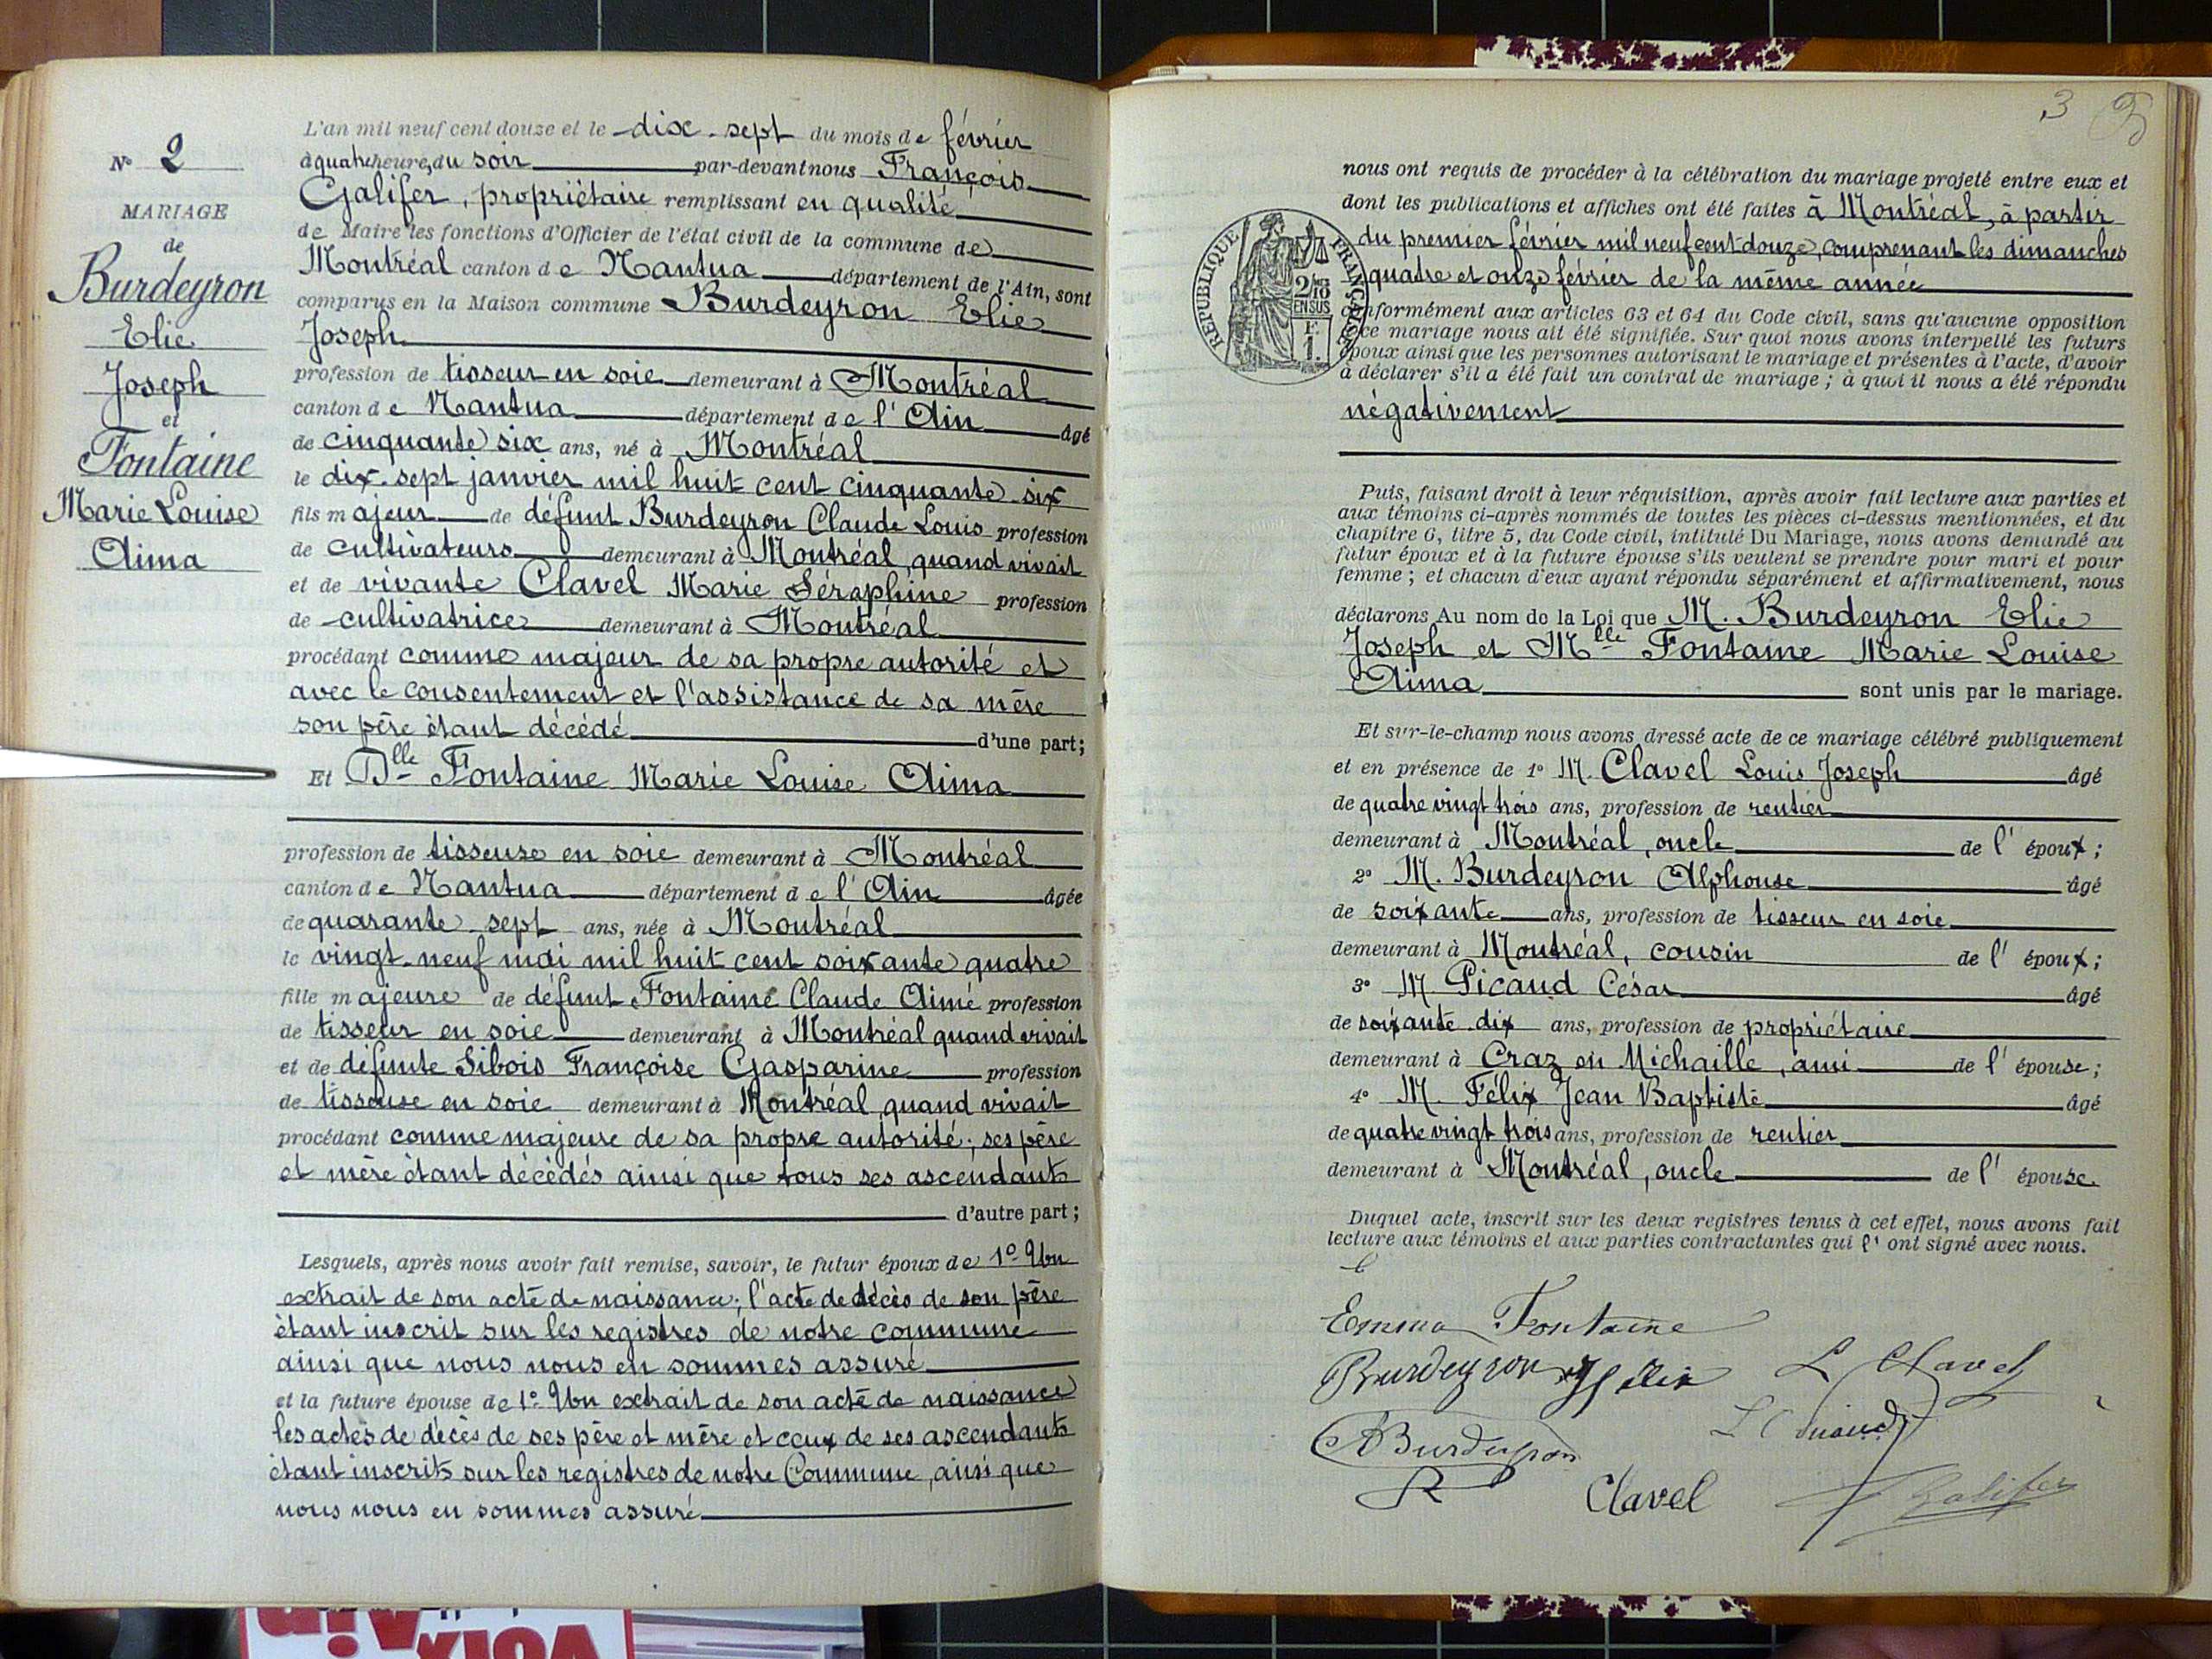 N° 2
MARIAGE
de
Burdeyron
Elie
Joseph
et
Fontaine
Marie Louise
Aima
L'an mil neuf cent douze et le dix-sept du mois de février
à quatre heures du soir par-devant nous François
Galifer, propriétaire remplissant en qualité
de Maire les fonctions d'Officier de l'état civil de la commune de
Montréal canton de Nantua département de l'Ain, sont
comparus en la Maison commune Burdeyron Elie
Joseph
profession de tisseur en soie demeurant à Montréal
canton de Nantua département de l'Ain âgé
de cinquante six ans, né à Montréal
le dix-sept janvier mil huit cent cinquante-six
fils majeur de défunt Burdeyron Claude Louis profession
de cultivateurs demeurant à Montréal, quand vivait
et de vivante Clavel Marie Séraphine profession
de cultivatrice demeurant à Montréal
procédant comme majeur de sa propre autorité et
avec le consentement et l'assistance de sa mère
son père étant décédé d'une part;
Et Dlle Fontaine Marie Louise Aima
profession de tisseuse en soie demeurant à Montréal
canton de Nantua département de l'Ain âgée
de quarante-sept ans, née à Montréal
le vingt-neuf mai mil huit cent soixante quatre
fille majeure de défunt Fontaine Claude Aimé profession
de tisseur en soie demeurant à Montréal quand vivait
et de défunte Sibois Françoise Gasparine profession
de tisseuse en soie demeurant à Montréal, quand vivait
procédant comme majeure de sa propre autorité; ses père
et mère étant décédés ainsi que tous ses ascendants
d'autre part;
Lesquels, après nous avoir fait remise, savoir, le futur époux de 1° Un
extrait de son acte de naissance; l'acte de décès de son père
étant inscrit sur les registres de notre commune
ainsi que nous nous en sommes assuré
et la future épouse de 1° Un extrait de son acte de naissance
les actes de décès de ses père et mère et ceux de ses ascendants
étant inscrits sur les registres de notre Commune, ainsi que
nous nous en sommes assuré
3
nous ont requis de procéder à la célébration du mariage projeté entre eux et
dont les publications et affiches ont été faites à Montréal, à partir
du premier février mil neuf cent douze, comprenant les dimanches
quatre et onze février de la même année
RÉPUBLIQUE FRANÇAISE
2/10
EN SUS
F.
1.
conformément aux articles 63 et 64 du Code civil, sans qu'aucune opposition
à ce mariage nous ait été signifiée. Sur quoi nous avons interpellé les futurs
époux ainsi que les personnes autorisant le mariage et présentes à l'acte, d'avoir
à déclarer s'il a été fait un contrat de mariage; à quoi il nous a été répondu
négativement
Puis, faisant droit à leur réquisition, après avoir fait lecture aux parties et
aux témoins ci-après nommés de toutes les pièces ci-dessus mentionnées, et du
chapitre 6, titre 5, du Code civil, intitulé Du Mariage, nous avons demandé au
futur époux et à la future épouse s'ils veulent se prendre pour mari et pour
femme; et chacun d'eux ayant répondu séparément et affirmativement, nous
déclarons Au nom de la Loi que M. Burdeyron Elie
Joseph et Mlle Fontaine Marie Louise
Aima sont unis par le mariage.
Et sur-le-champ nous avons dressé acte de ce mariage célébré publiquement
et en présence de 1° M. Clavel Louis Joseph âgé
de quatre vingt trois ans, profession de rentier
demeurant à Montréal, oncle de l'époux;
2° M. Burdeyron Alphonse âgé
de soixante ans, profession de tisseur en soie
demeurant à Montréal, cousin de l'époux;
3° M. Picaud César âgé
de soixante-dix ans, profession de propriétaire
demeurant à Craz en Michaille, ami de l'épouse;
4° M. Félix Jean Baptiste âgé
de quatre vingt trois ans, profession de rentier
demeurant à Montréal, oncle de l'épouse.
Duquel acte, inscrit sur les deux registres tenus à cet effet, nous avons fait
lecture aux témoins et aux parties contractantes qui l'ont signé avec nous.
Emma Fontaine
Burdeyron L Clavel
ABurdeyron
Clavel Galifer
VOIX